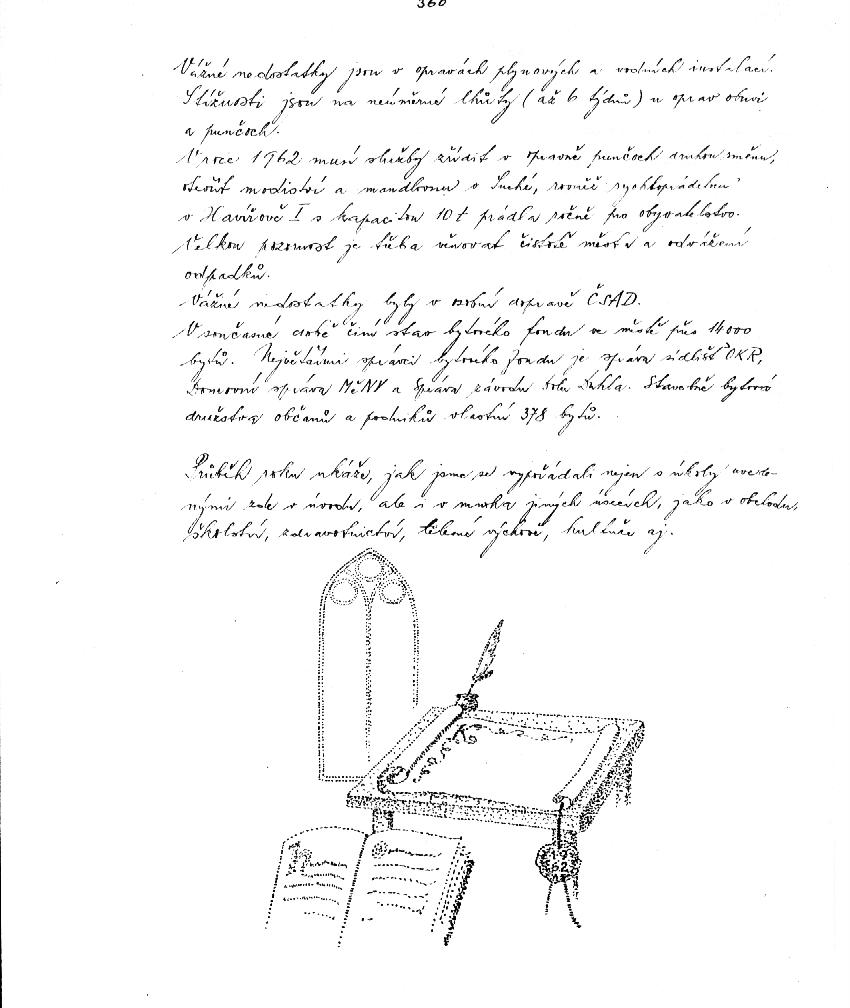 360
Vážné nedostatky jsou v opravách plynových a vodních instalací.
Stížnosti jsou na neúměrné lhůty (až 6 týdnů) u oprav obuvi
a punčoch.
V roce 1962 musí služby zřídit v opravně punčoch druhou směnu,
otevřít modiství a mandlovnu v Suché, rovněž rychloprádelnu
v Havířově I s kapacitou 10 t prádla ročně pro obyvatelstvo.
Velkou pozornost je třeba věnovat čistotě města a odvážení
odpadků.
Vážné nedostatky byly v osobní dopravě ČSAD.
V současné době činí stav bytového fondu ve městě přes 14 000
bytů. Největšími správci bytového fondu je správa sídlišť OKR,
Domovní správa MěNV a Správa závodu Dolu Dukla. Stavebně bytová
družstva občanů a podniků vlastní 378 bytů.
Průběh roku ukáže, jak jsme se vypořádali nejen s úkoly uvede-
nými zde v úvodu, ale i v mnoha jiných úsecích, jako v obchodu,
školství, zdravotnictví, tělesné výchově, kultuře aj.